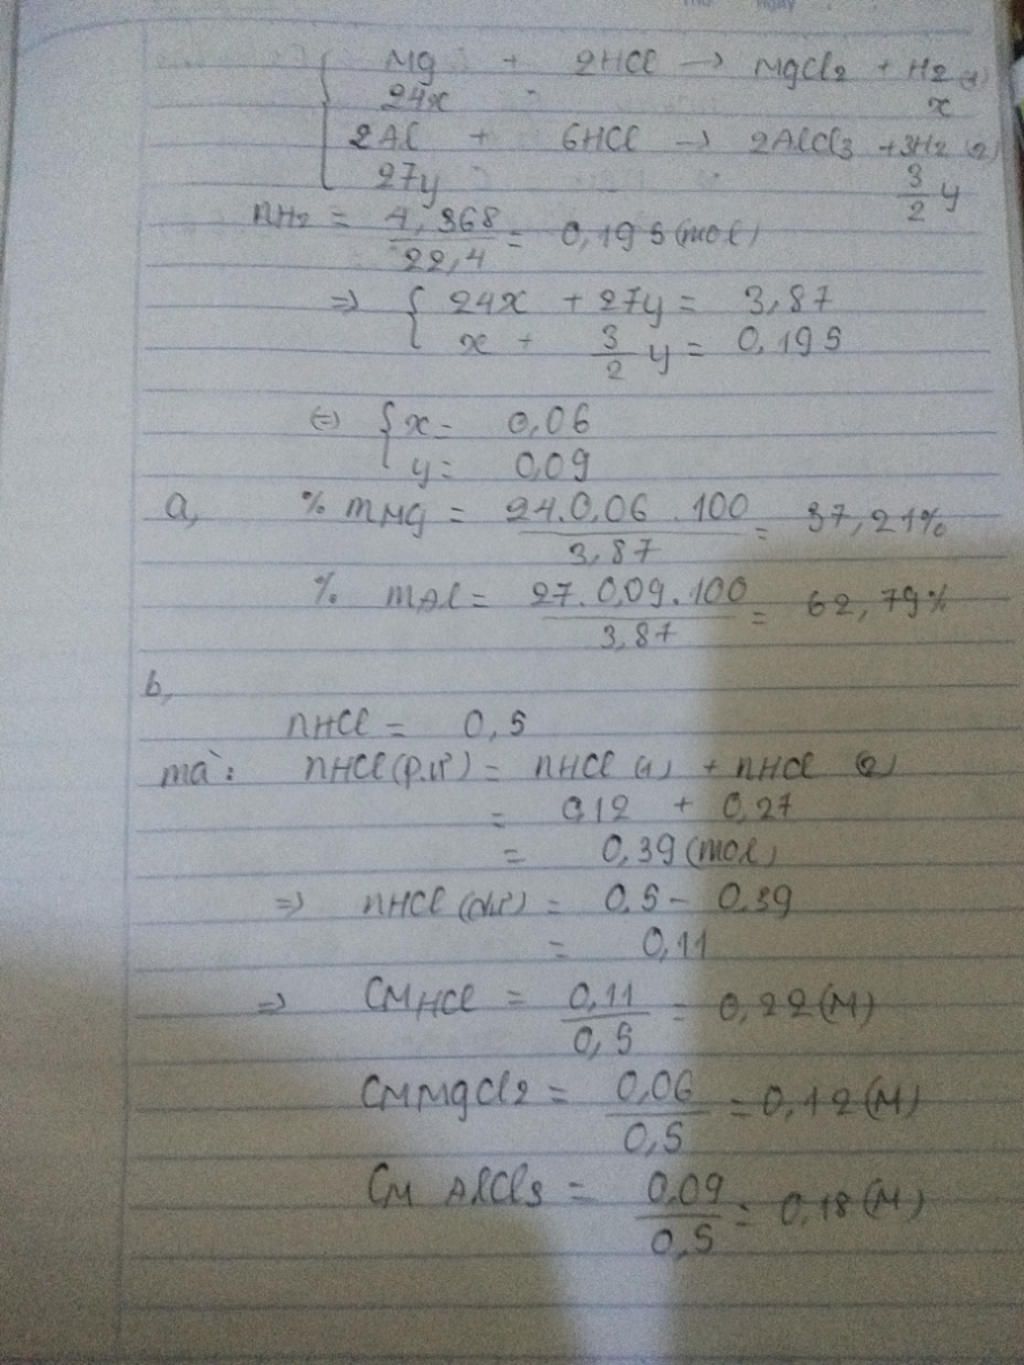 Mg + 2HCl → MgCl2 + H2 (1)
24x x
2Al + 6HCl → 2AlCl3 + 3H2 (2)
27y 3/2 y
nH2 = 4,368/22,4 = 0,195 (mol)
=> { 24x + 27y = 3,87
x + 3/2 y = 0,195
(=) { x = 0,06
y = 0,09
a, % mMg = 24.0,06.100/3,87 = 37,21%
% mAl = 27.0,09.100/3,87 = 62,79%
b,
nHCl = 0,5
mà: nHCl (p.ư) = nHCl (1) + nHCl (2)
= 0,12 + 0,27
= 0,39 (mol)
=> nHCl (dư) = 0,5 - 0,39
= 0,11
=> CM HCl = 0,11/0,5 = 0,22 (M)
CM MgCl2 = 0,06/0,5 = 0,12 (M)
CM AlCl3 = 0,09/0,5 = 0,18 (M)